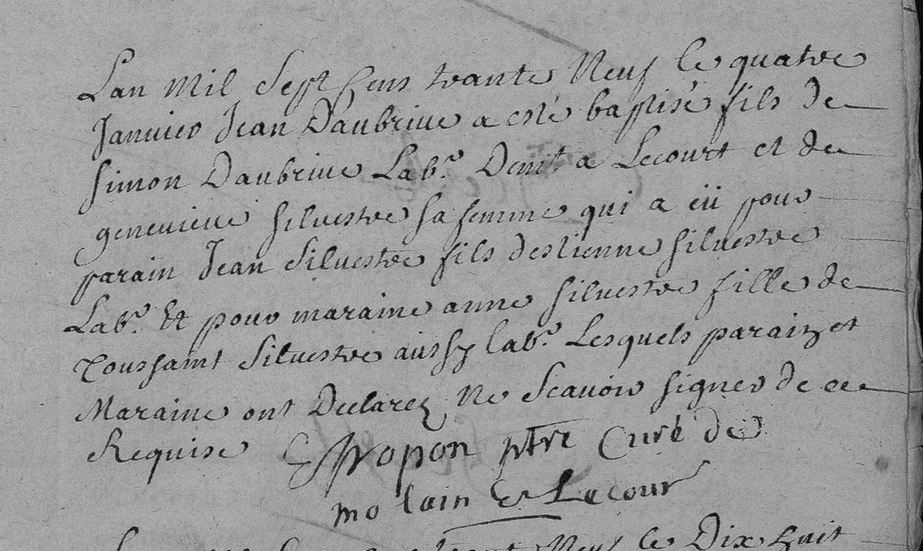 Lan Mil Sept Cens trante Neuf le quatre
Janvier Jean Daubrive a esté baptisé fils de
Simon Daubrive Labr. Demt a Lecourt et de
genevieve Silvestre sa femme qui a eü pour
parain Jean Silvestre fils destienne Silvestre
Labr. Et pour maraine anne Silvestre fille de
Toussaint Silvestre aussy labr. Lesquels parain et
Maraine ont Declarez Ne Scavoir signer de ce
Requise ptre Curé de
molain & Lecour
Neuf le Dix huit